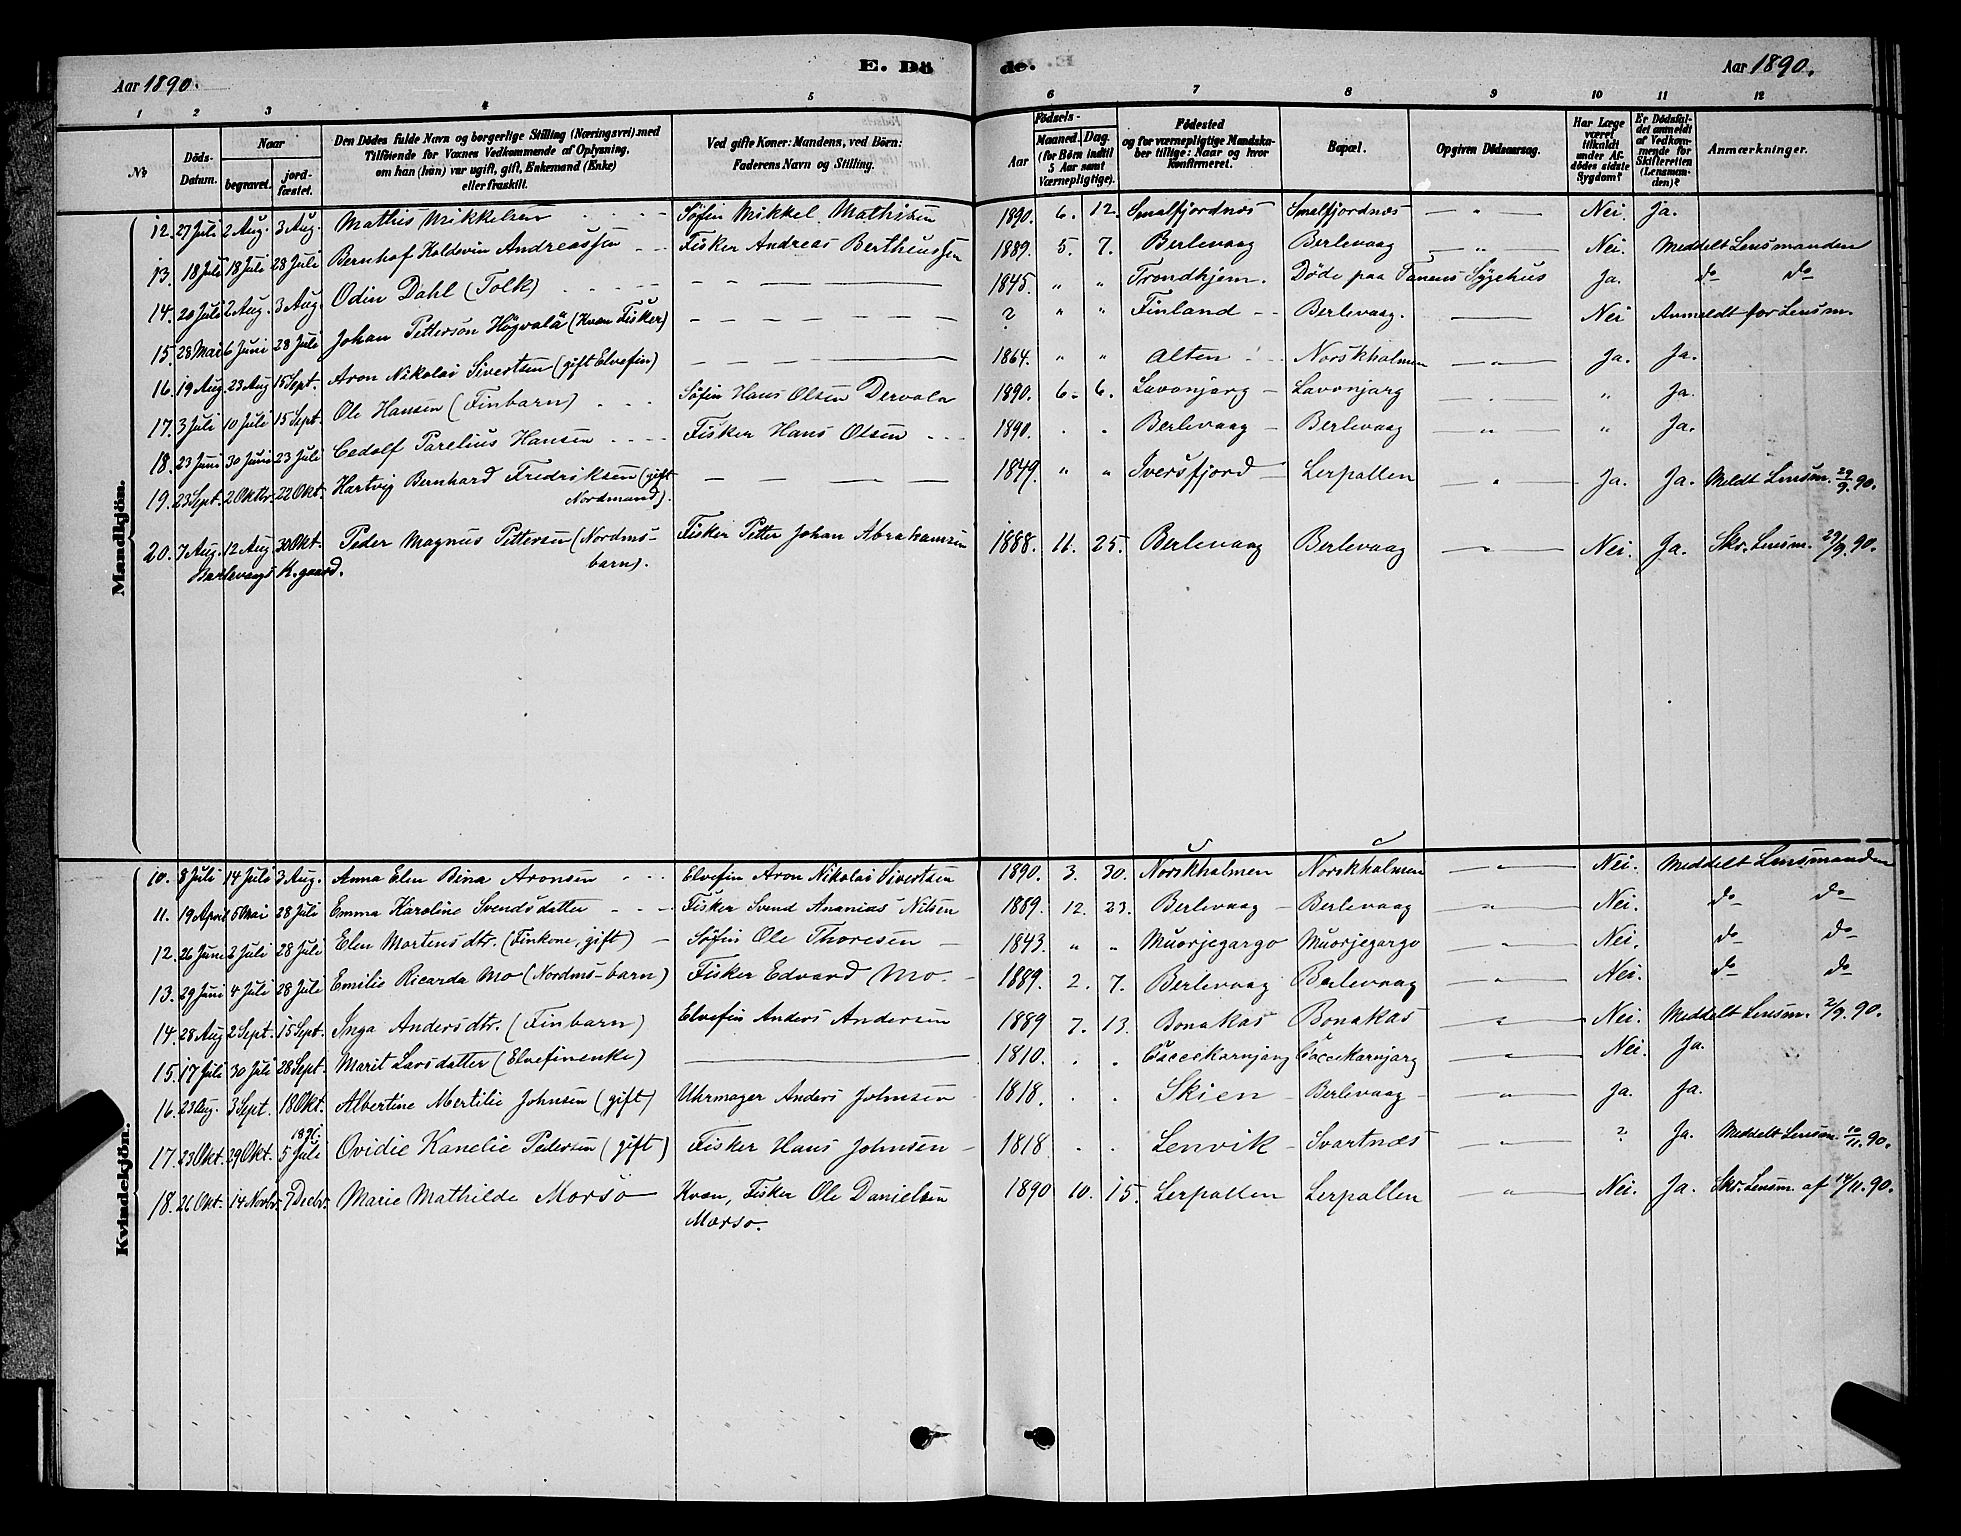 Aar 1890. E. Dö de. Aar 1890.
1 2 3 4 5 6 7 8 9 10 11 12
№ Döds-Datum. Naar begravet. jordfæstet. Den Dödes fulde Navn og borgerlige Stilling (Næringsvei) med Tilföiende for Voxnes Vedkommende af Oplysning, om han (hun) var ugift, gift, Enkemand (Enke) eller fraskilt. Ved gifte Koner: Mandens, ved Börn: Faderens Navn og Stilling. Födsels- Aar Maaned. Dag. (for Börn indtil 5 Aar samt Værnepligtige). Födested og for værnepligtige Mandskaber tillige: Naar og hvor konfirmeret. Bopæl. Opgiven Dödsaarsag. Har Læge været tilkaldt under Afdödes sidste Sygdom? Er Dödsfaldet anmeldt af Vedkommende for Skifteretten (Lensmanden)? Anmærkninger.
Mandkjön.
12. 27 Juli 2 Aug. 3 Aug. Mathis Mikkelsen Søfin Mikkel Mathisen 1890. 6. 12. Smalfjordnæs Smalfjordnæs — " — Nei. Ja.
13. 18 Juli 18 Juli 28 Juli Bernhof Haldevin Andreassen Fisker Andreas Bertheussen 1889. 5. 7. Berlevaag Berlevaag — " — Nei. Meddelt Lensmanden
14. 20 Juli 2 Aug. 3 Aug. Odin Dahl (Tolk) 1845. " " Trondhjem. Døde paa Tanens Sygehus Ja. do do
15. 28 Mai 6 Juni 28 Juli Johan Petterson Högvalä (Kvæn Fisker) ? " " Finland Berlevaag. — Nei Anmeldt for Lensm.
16. 19 Aug 23 Aug 15 Sept. Aron Nikolai Sivertsen (gift Elvefin) 1864. " " Alten Norskholmen — " — Ja. Ja.
17. 3 Juli 10 Juli 15 Sept. Ole Hansen (Finbarn) Søfin Hans Olsen Dervola 1890. 6. 6. Lavonjarg Lavonjarg — " — " Ja.
18. 23 Juni 30 Juni 23 Juli Cedolf Parelius Hansen Fisker Hans Olsen 1890. . . Berlevaag Berlevaag — " — " Ja.
19. 23 Sept. 2 Oktbr. 22 Okt. Hartvig Bernhard Fredriksen (gift Nordmand). 1849. " " Iversfjord Lerpollen — " — Ja. Ja. Meldt Lensm. 29/9. 90.
20. 7 Aug. 12 Aug 30 Okt. Peder Magnus Pettersen (Nordms-barn). Fisker Petter Johan Abrahamsen 1888. 11. 25. Berlevaag Berlevaag — " — Nei. Ja. Skr. Lensm. 29/9. 90.
Berlevaags K.gaard.
Kvindekjön.
10. 8 Juli 14 Juli 3 Aug. Anna Elen Bina Aronsen Elvefin Aron Nikolai Sivertsen 1890. 3. 30. Norskholmen Norskholmen — " — Nei. Meddelt Lensmanden
11. 19 April 5 Mai 28 Juli Emma Karoline Svendsdatter Fisker Svend Ananias Nilsen 1889. 12. 23. Berlevaag Berlevaag — " — Nei. do do
12. 26 Juni 2 Juli 28 Juli Elen Mortensdtr. (Finkone, gift) Søfin Ole Thoresen 1843. " " Muorjegargo Muorjegargo — " — Nei. do do
13. 29 Juni 4 Juli 28 Juli Emilie Ricarda Mo (Nordms-barn) Fisker Edvard Mo. 1889. 2. 7. Berlevaag Berlevaag — " — Nei. do do
14. 28 Aug 2 Sept. 15 Sept. Inga Andersdtr. (Finbarn) Elvefin Anders Andersen 1889 7. 13. Bonakas Bonakas — " — Nei. Meddelt Lensm. 2/9. 90.
15. 17 Juli 30 Juli 28 Sept. Marit Larsdatter (Elvefinenke) 1810. . . Caccekarnjarg Caccekarnjarg — " — Nei. Ja.
16. 23 Aug. 3 Sept. 18 Okt. Albertine Mertilie Johnsen (gift) Uhrmager Anders Johnsen 1818. . . Skien Berlevaag — " — Ja. Ja.
17. 23 Okt. 29 Okt. 1891. 5 Juli Ovidie Kanelie Pedersen (gift) Fisker Hans Johnsen 1818 . . Lenvik Svartnæs — " — ? Ja. Meddelt Lensm. 10/11. 90.
18. 26 Okt. 14 Novbr. 7 Decbr. Marie Mathilde Morsø Kvæn, Fisker Ole Danielsen Morsø. 1890 10. 15. Lerpollen Lerpollen — " — Nei. Ja. Skr. Lensm. af 14/11. 90.